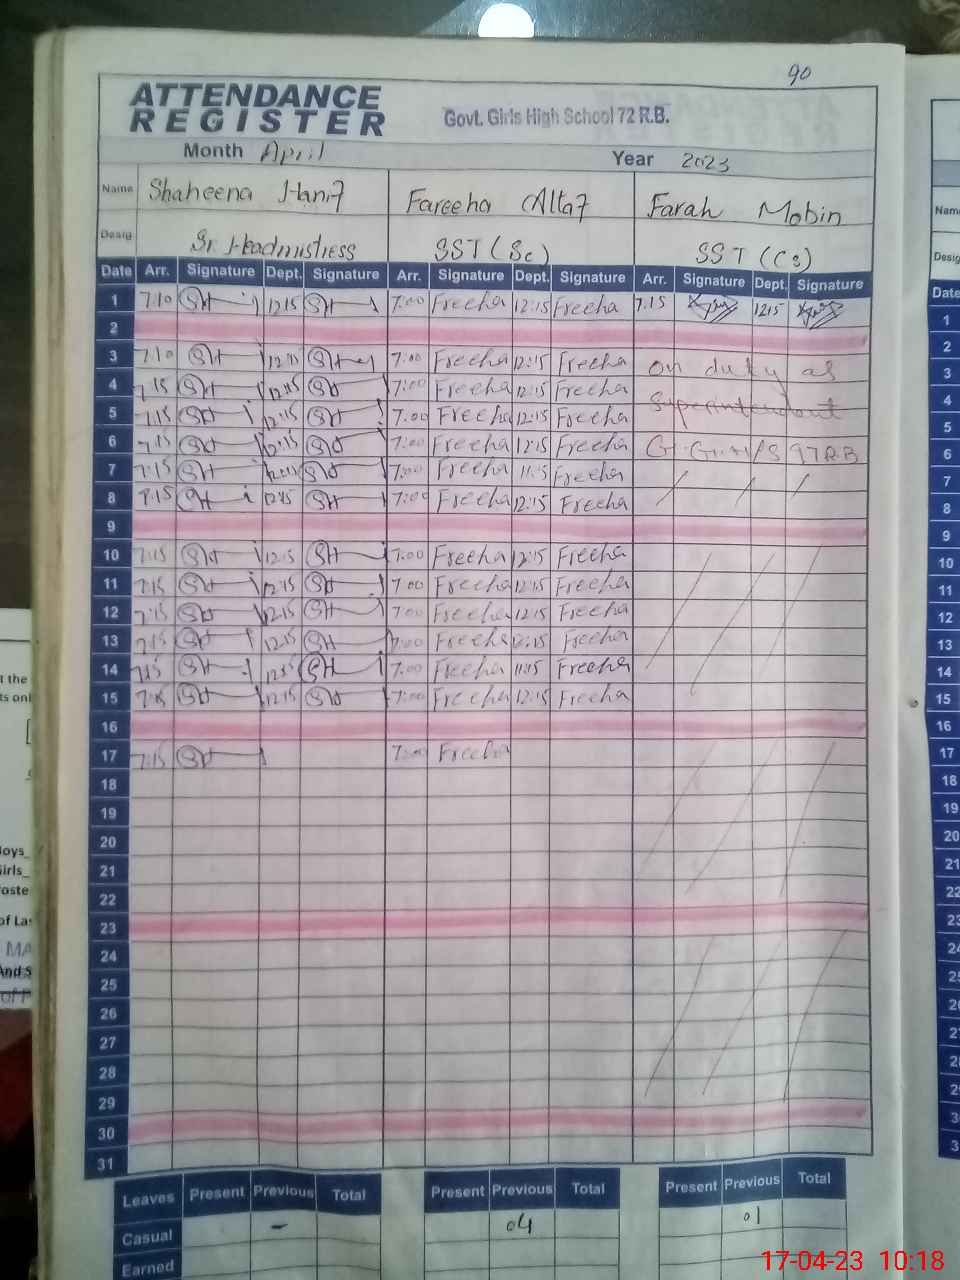 90
ATTENDANCE
REGISTER
Govt. Girls High School 72 R.B.
Month April Year 2023
Name Shaheena Hanif Fareeha Altaf Farah Mobin
Desig. Sr. Headmistress SST (Sc) SST (Cs)
Date Arr. Signature Dept. Signature Arr. Signature Dept. Signature Arr. Signature Dept. Signature
1 7.10 SH 12 15 SH 7:00 Freeha 12:15 Freeha 7.15 12 15
2
3 7.10 SH 12:15 SH 7:00 Freeha 12:15 Freeha on duty as
4 7.15 SH 12:15 SH 7:00 Freeha 12:15 Freeha Superintendent
5 7.15 SH 12:15 SH 7.00 Freeha 12:15 Freeha
6 7:15 SH 12:15 SH 7:00 Freeha 12:15 Freeha G.G.H/S 97RB
7 7:15 SH SH 7:00 Freeha 11:15 Freeha
8 7.15 SH 12 15 SH 7:00 Freeha 12:15 Freeha
9
10 7:15 SH 12:15 SH 7:00 Freeha 12:15 Freeha
11 7:15 SH 12:15 SH 7 00 Freeha 12:15 Freeha
12 7:15 SH 12.15 SH 7:00 Freeha 12:15 Freeha
13 7:15 SH 12.15 SH 7:00 Freeha 12:15 Freeha
14 7:15 SH SH 7:00 Freeha 11:15 Freeha
15 7:15 SH 12.15 SH 7:00 Freeha 12:15 Freeha
16
17 7:15 SH 7:00 Freeha
18
19
20
21
22
23
24
25
26
27
28
29
30
31
Leaves Present Previous Total Present Previous Total Present Previous Total
Casual - 04 01
Earned
17-04-23 10:18